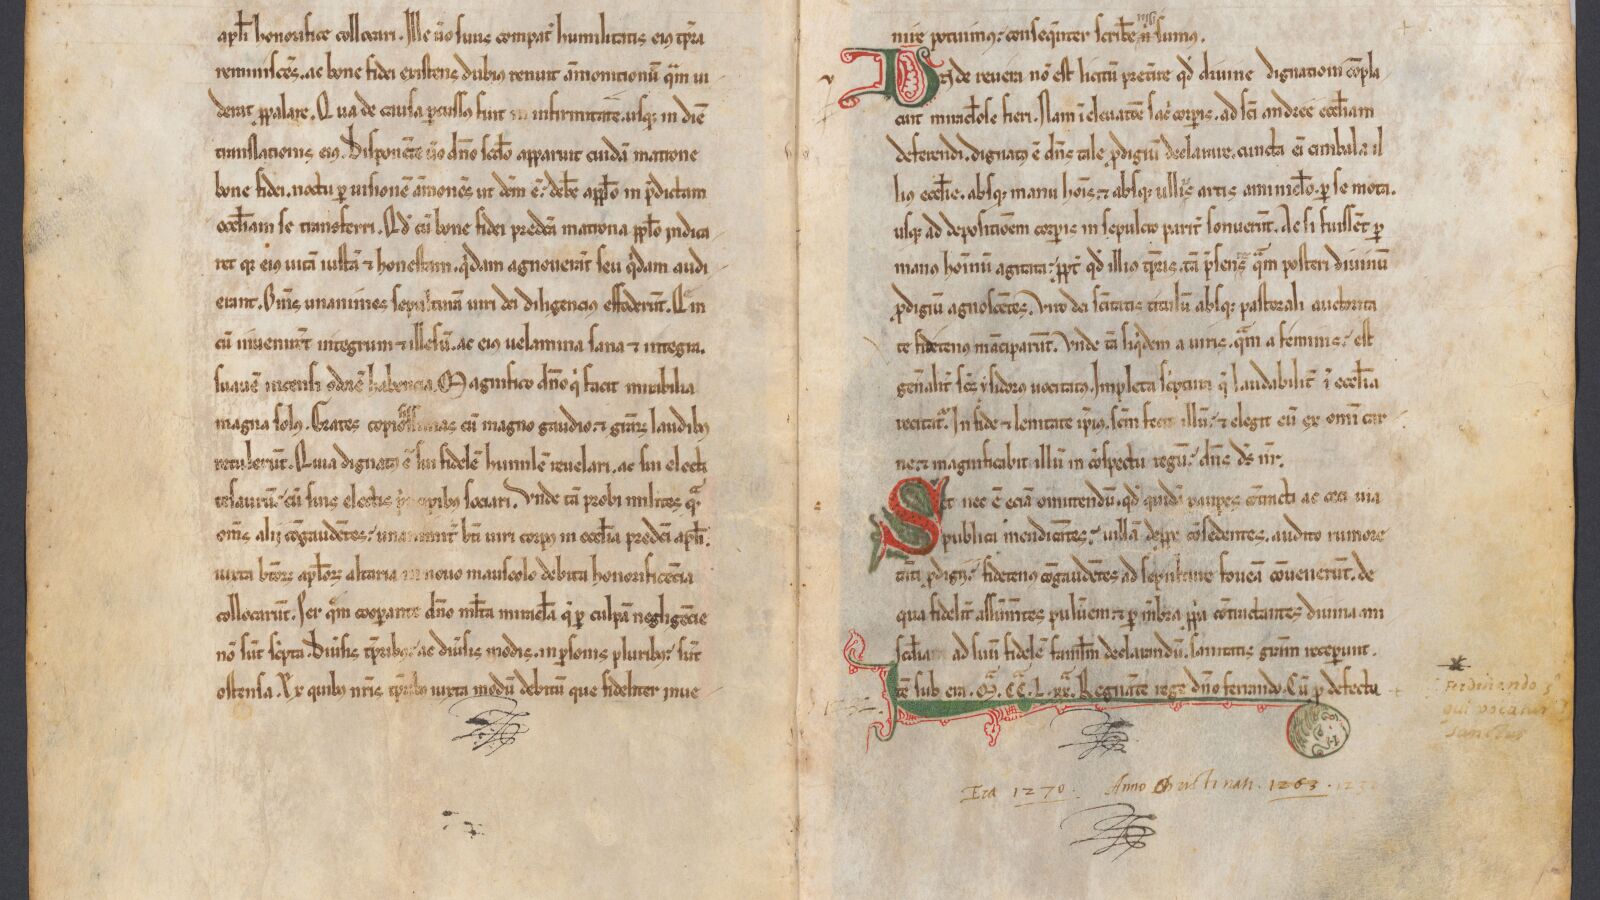 apłi honorifice collocari. Ille ũo suus compat̃ humilitatis eius tp̃ra
reminiscẽs. ac bone fidei existens dubius renuit ãmonitionũ qãm ui
derat ppalare. Qua de causa percussus fuit in infirmitatẽ. usq; in diẽ
translationis eius. Disponẽte ũo dño sc̃do apparuit cuidã matrone
bone fidei. noctu per uisionẽ ãmonẽs ut dẽm ẽ: debẽ appło in p̃dictam
eccłiam se transferri. Qd̃ cũ bone fidei predc̃a matrona pplo indica
ret qr eius uitã iustã ⁊ honestam. q̃dam agnouerãt seu q̃dam audi
erant. Om̃s unanimes sepulturã uiri dei diligencius effoderũt. Qẽ in
cũ inuenirẽt integrum ⁊ illesũ. ac eius uelamina sana ⁊ integra.
suauẽ incensi odorẽ habencia. Magnifico dño qi facit mirabilia
magna solus. Grates copiosissimas cũ magno gaudio. ⁊ gr̃arꝫ laudibus
retulerũt. Quia dignatus ẽ sui fidelẽ humilẽ reuelari. ac sui electi
tesaurũ: cũ suis electis p̃ncipibus sociari. Unde tã probi milites qã
om̃s alii cõgaudẽtes: unanimit̃ bt̃i uiri corpus in eccłia predc̃i apłi.
iuxta bt̃orꝫ apłorꝫ altaria in nouo mausolo debita honorificẽcia
collocarũt. Per qãm cooperante dño ml̃ta miracła qi per culpã negligẽcie
nõ sũt sc̃pta. Diũsis tp̃ribus: ac diũsis modis. in personis pluribus: sũt
ostensa. Ex quibus nr̃is tp̃ribus iuxta modũ debitũ que fideliter inue
nire potuimus: conseqũnter scribẽ nisi sumus.
Unde reuera nõ est licitũ pret̃ire qd̃ diuine dignationi cõpla
cuit miraclose fieri. Nam ĩ eleuatõe sac̃ corpis. ad sc̃i andree eccłiam
deferendi. dignatus ẽ dñs tale pdigiũ declarare. cuncta ei cimbala il
lius eccłie. absq; manu hoĩs. ⁊ absq; ullius artis aminiclo. per se mota.
usq; ad depositiõem corpis in sepulcro parit̃ sonuerũt. Ac si fuissẽt per
manus hominũ agitata: ppt̃ qd̃ illius tp̃ris. tã p̃sentes qãm posteri diuinũ
pdigiũ agnoscẽtes. Uiro dei sc̃itatis titulũ absq; pastorali auctorita
te fidetenus mãciparũt. Unde tã siq̃dem a uiris. qãm a feminis: est
gen̄alit̃ sc̃s ysidorus uocitatus. Impleta sc̃ptura qi laudabilit̃ ĩ eccłia
recitat̃. In fide ⁊ lenitate ipius. sc̃m fecit illũ: ⁊ elegit eũ ex omi car
ne: ⁊ magnificabit illũ in cõspectu regũ: dñs ds̃ nr̃.
Set nec ẽ eciã omittendũ. qd̃ quidã paupes cũncti ac ceci uia
publica mendicãtes: uillã deppe cõsedentes. audito rumore
tãti pdigii: fidetenus cõgaudẽtes ad sepulture foueã cõuenerũt. de
qua fidelit̃ assũmẽtes puluerem: ⁊ per mẽbra ppa cõtractantes diuina mi
sc̃dia ad suũ fidelẽ famłm declarandũ. sanitatis gr̃am receperunt.
te sub era. M̃. CC̃. L. xx̃. Regnãte rege dño fernando. Cũ p defectu
Ferdinando 3º
qui vocatur
sanctus
Era 1270. Anno Christi nati. 1263. 1232